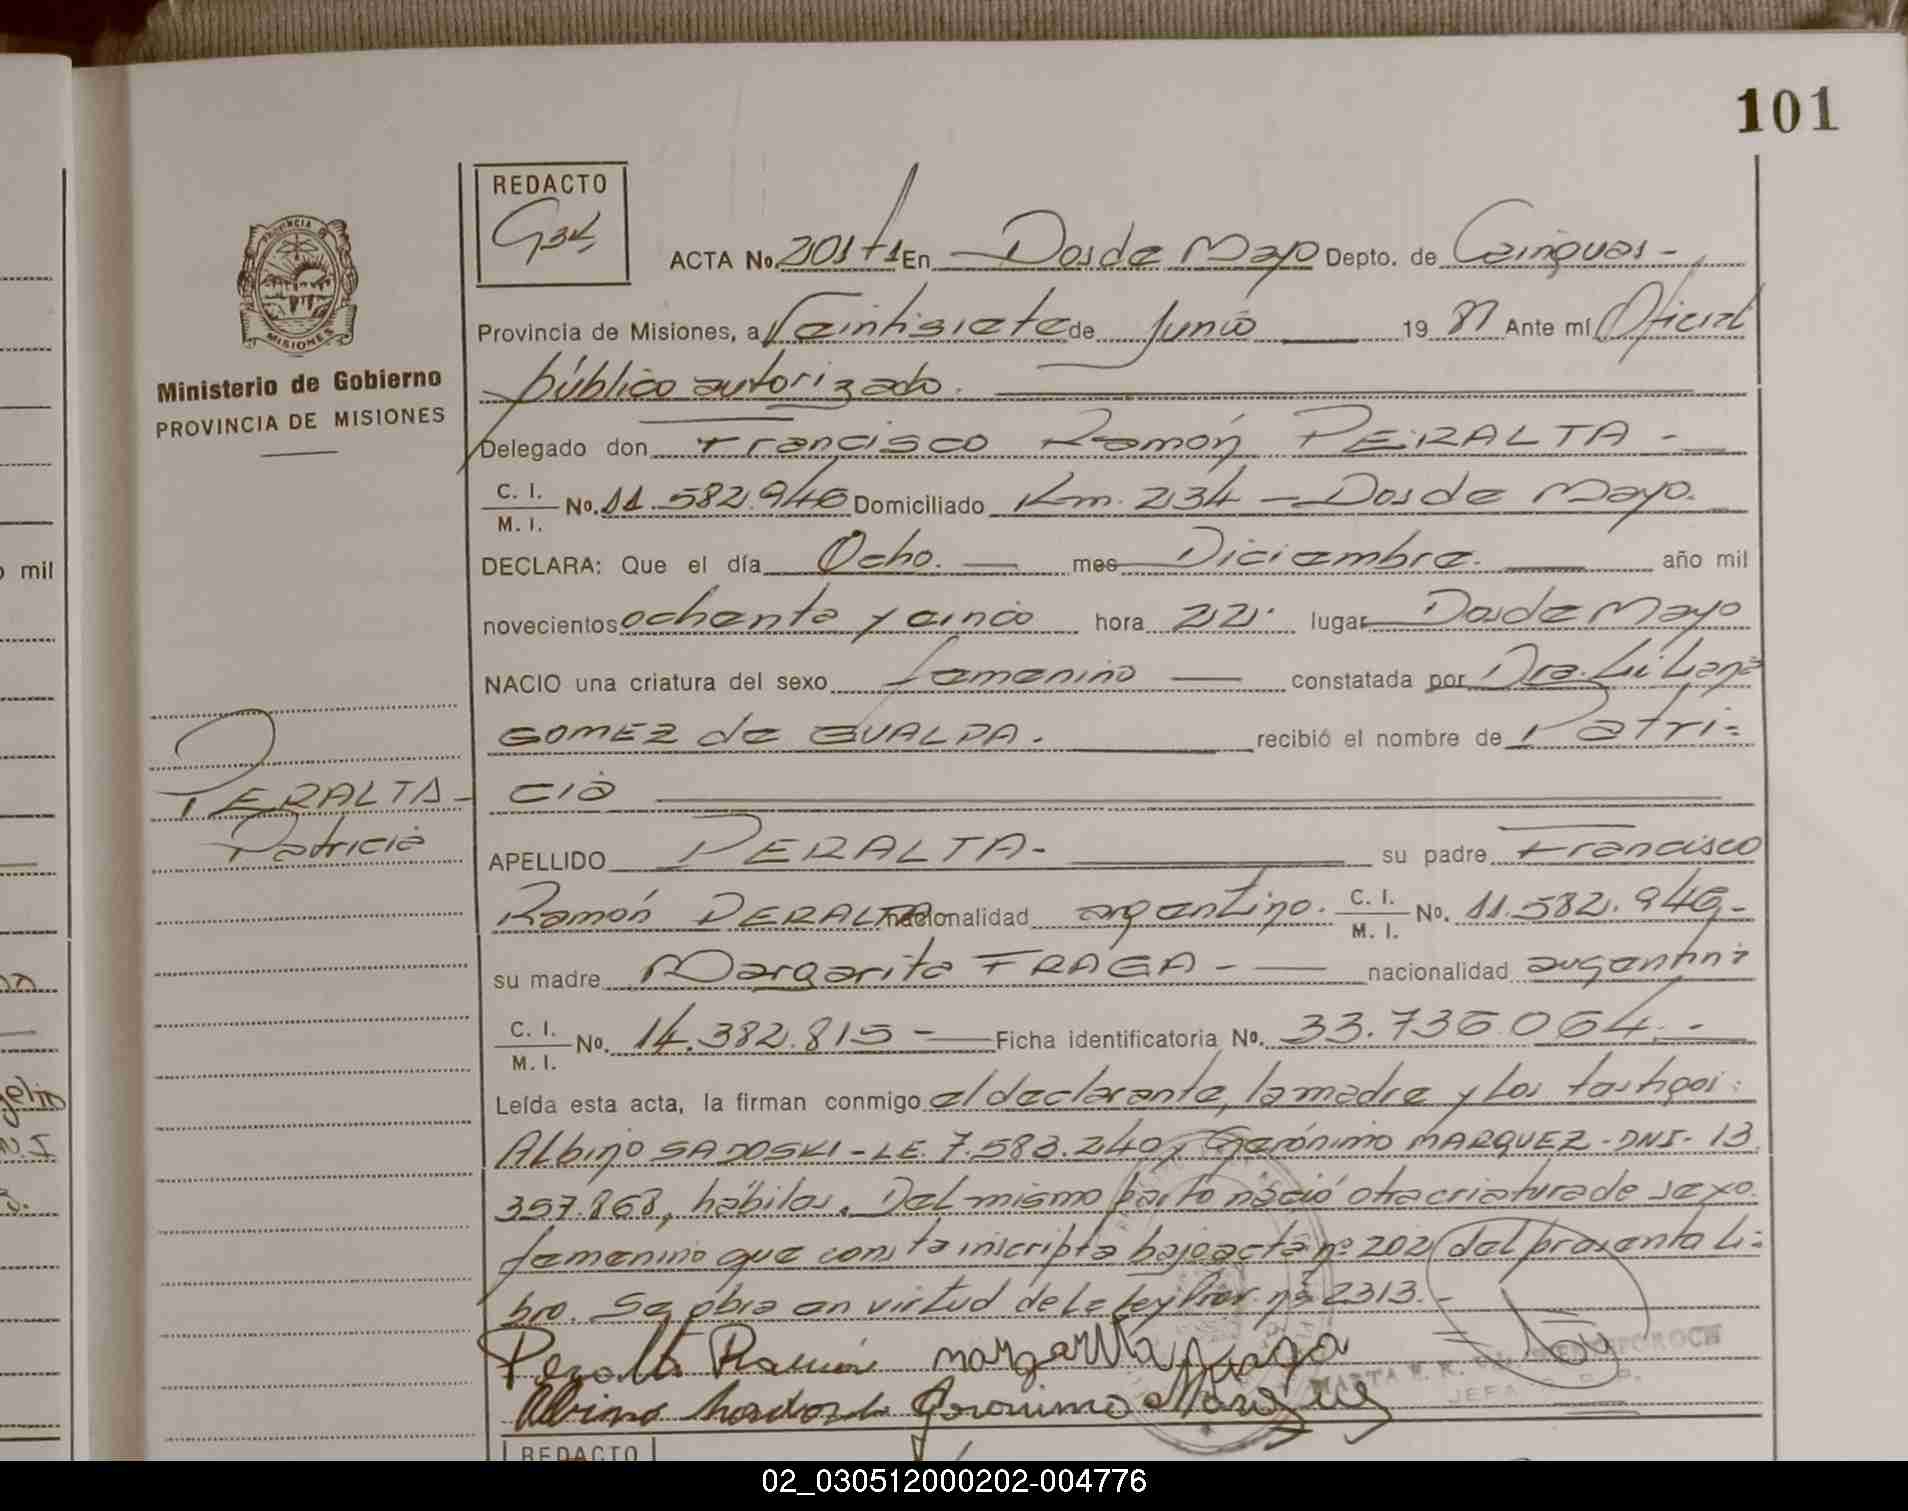 101
REDACTO
ACTA No. 201 t 1 En Dos de Mayo Depto. de Cainguas -
Provincia de Misiones, a Veintisiete de Junio 19 87 Ante mí Oficial
público autorizado.
Delegado don Francisco Ramón PERALTA -
C. I. M. I. No. 11.582.946 Domiciliado Km. 234 - Dos de Mayo.
DECLARA: Que el día Ocho. mes Diciembre. año mil
novecientos ochenta y cinco hora 22. lugar Dos de Mayo
NACIO una criatura del sexo femenino constatada por Dra. Liliana
GOMEZ de GUALDA. recibió el nombre de Patri-
cia
APELLIDO PERALTA- su padre Francisco
Ramón PERALTA nacionalidad argentino. C. I. M. I. No. 11.582.946-
su madre Margarita FRAGA - nacionalidad argentina
C. I. M. I. No. 14.382.815 - Ficha identificatoria No. 33.736.064.-
Leída esta acta, la firman conmigo el declarante, la madre y los testigos:
Albino SADOSKI - LE. 7.583.240 y Gerónimo MARQUEZ - DNI- 13.
357.868, hábiles. Del mismo parto nació otra criatura de sexo
femenino que consta inscripta bajo acta nº 202 del presente li-
bro. Se obra en virtud de la Ley Prov. nº 2313.-
Peralta Ramón Margarita Fraga
Albino Geronimo Marquez
PROVINCIA
MISIONES
Ministerio de Gobierno
PROVINCIA DE MISIONES
PERALTA-
Patricia
o mil
REDACTO
02_030512000202-004776